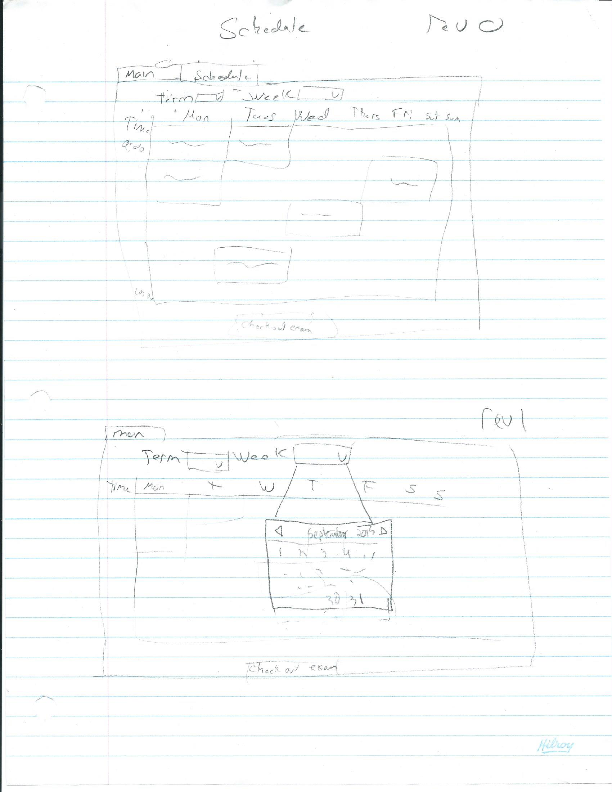 Schedule rev 0
Main Schedule
Term Week
Time Mon Tues Wed Thurs Fri sat sun
Check out exam
rev 1
Main
Term Week
Time Mon T W T F S S
September 2013
1 2 3 4
30 31
Check out exam
Hilroy